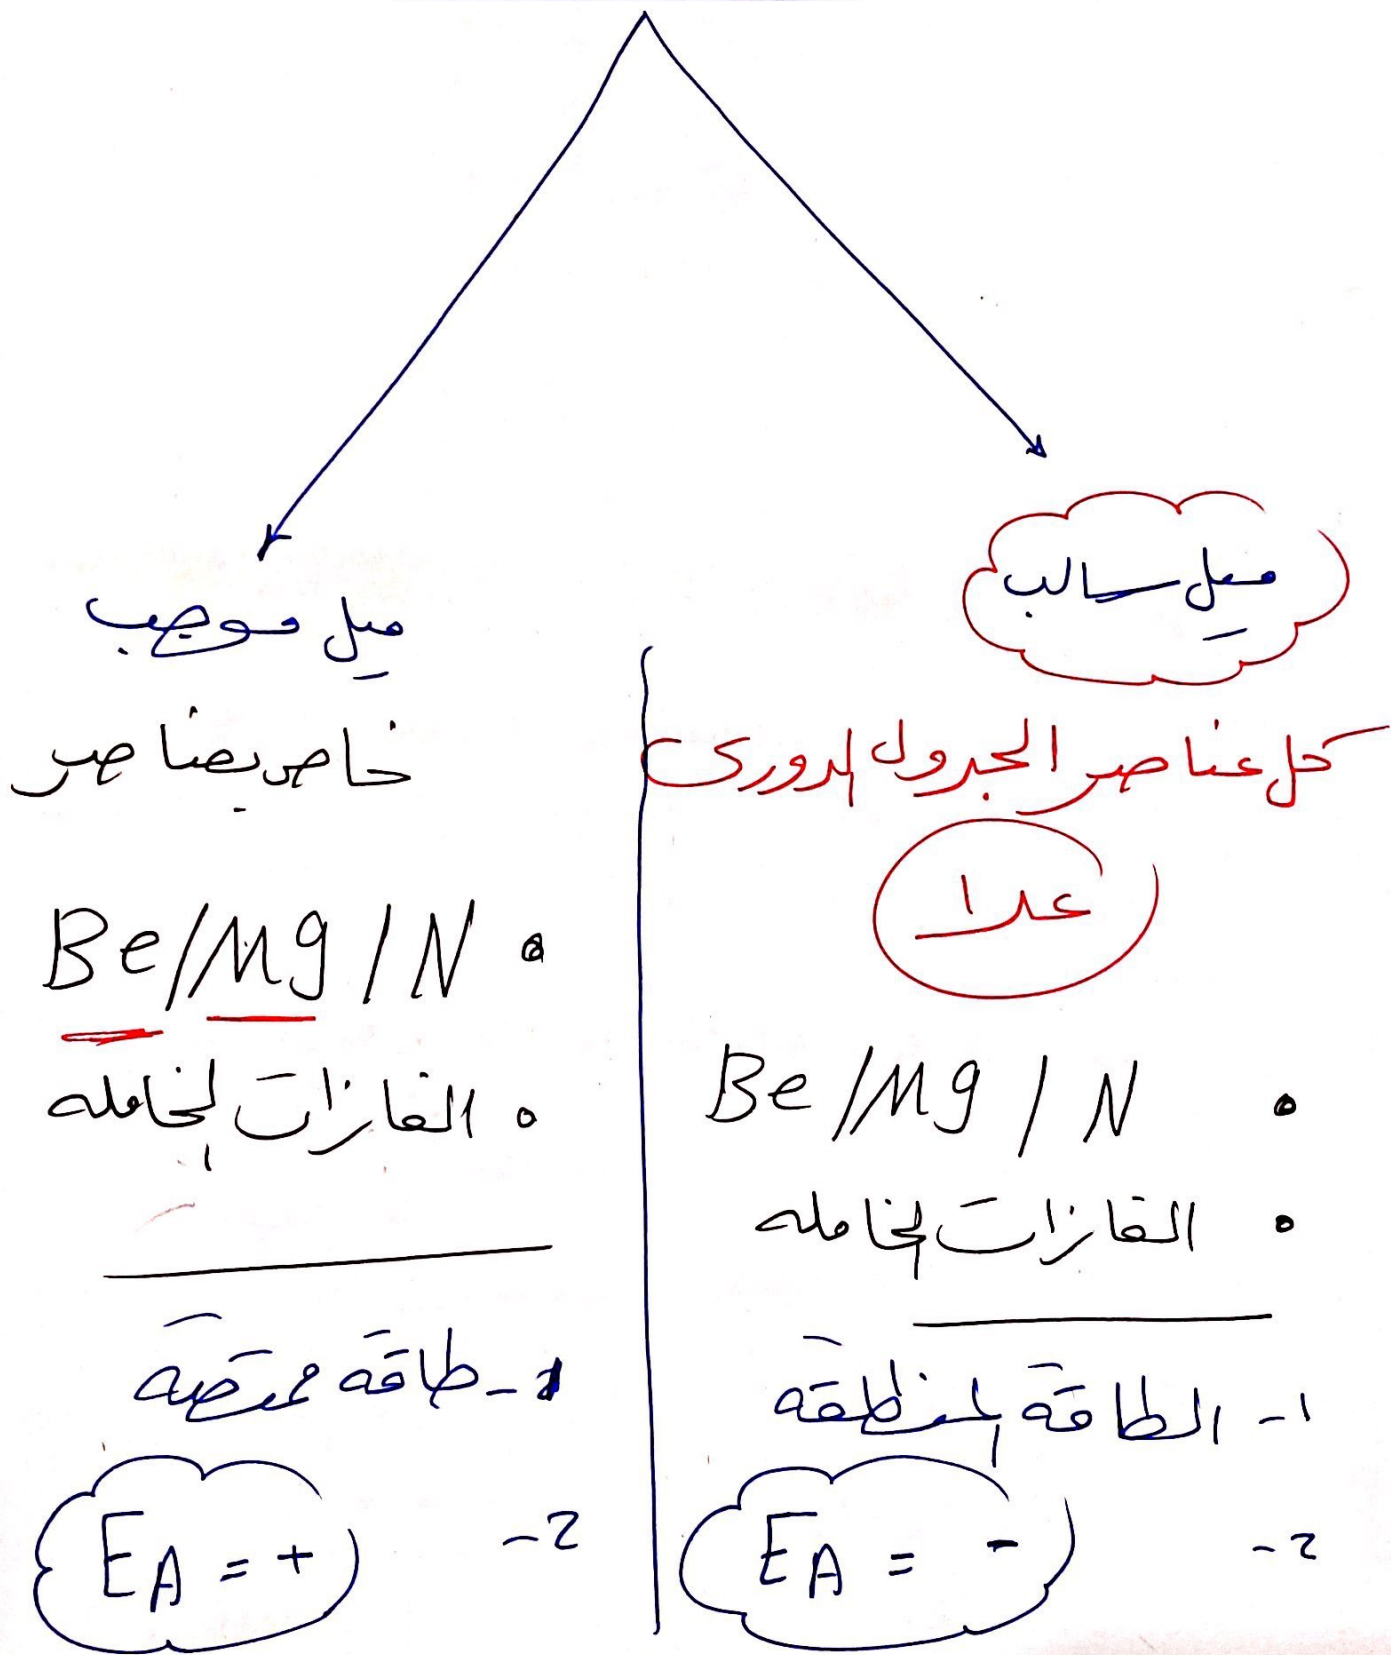 ميل سالب
كل عناصر الجدول الدورى
عدا
• Be/Mg/N
• الغازات الخامله
1- الطاقة المنطلقة
2- EA = -
ميل موجب
خاص بعناصر
• Be/Mg/N
• الغازات الخامله
1- طاقة ممتصة
2- EA = +